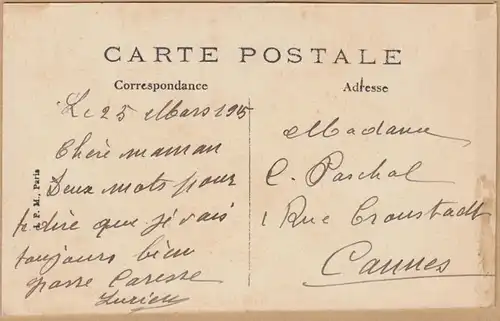 CARTE POSTALE
Correspondance
Adresse
Le 25 Mars 195
Chère maman
Deux mots pour
te dire que je vais
toujours bien
grosse Caresse
Lucien
P. M., Paris
Madame
C. Paschal
1 Rue Cronstadt
Cannes